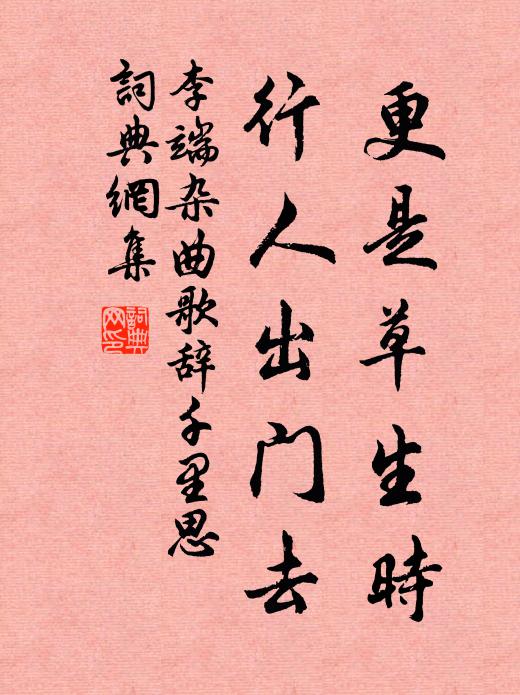 更是草生時
行人出门去
李端杂曲歌辞千里思
詞典網集
詞典网印